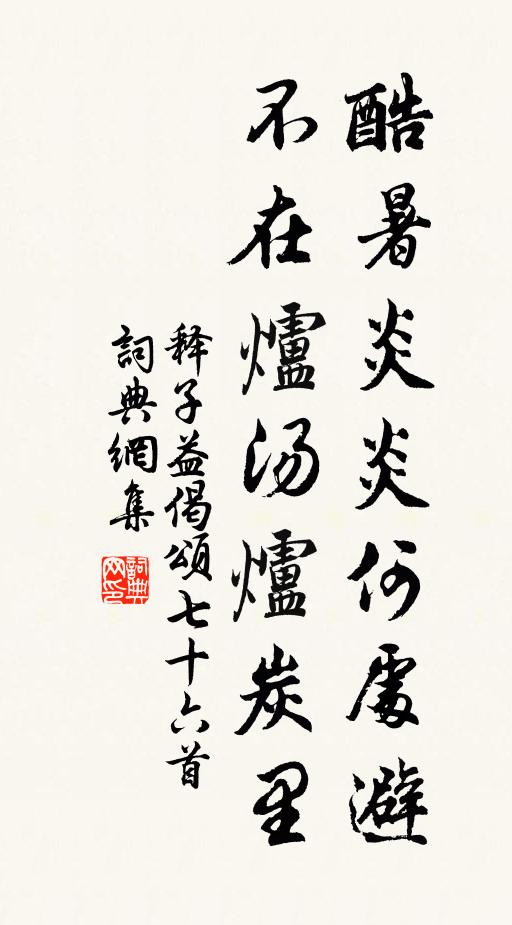 酷暑炎炎何處避
不在爐汤爐炭里
释子益偈頌七十六首
詞典網集
詞典网印